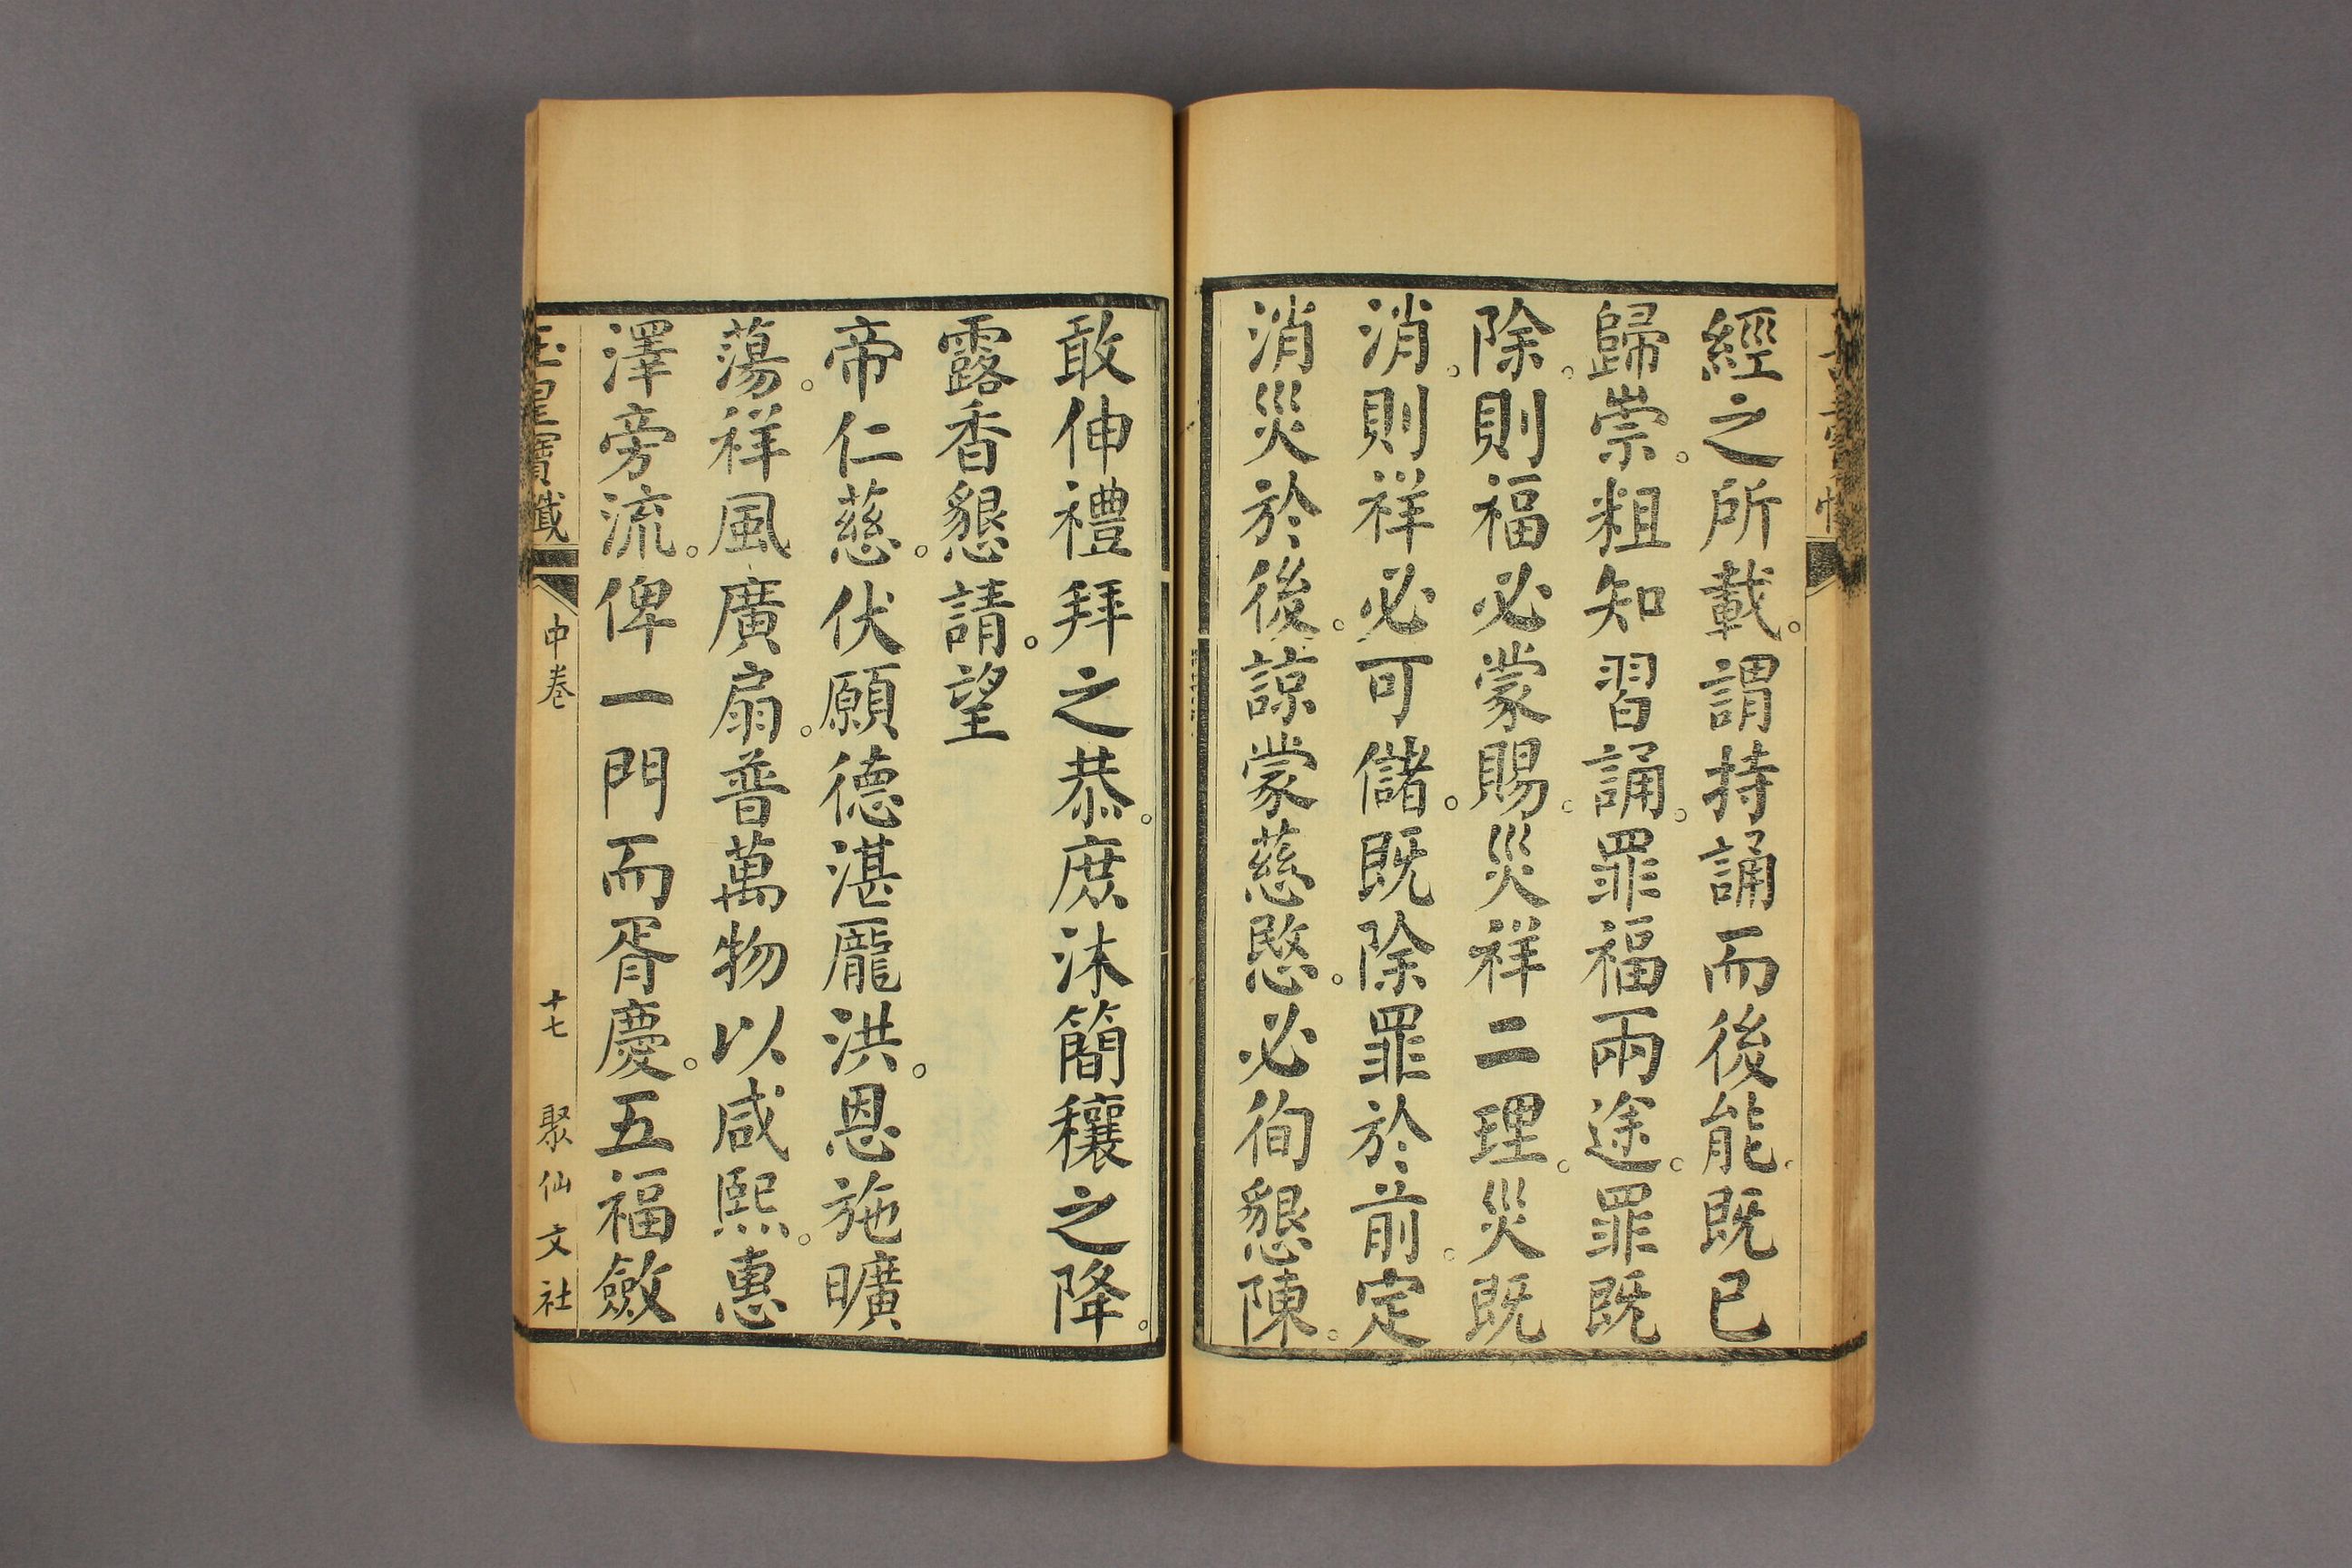 經之所載。謂持誦而後能。既已
歸崇。粗知習誦。罪福兩途。罪既
除。則福必蒙賜。災祥二理。災既
消。則祥必可儲。既除罪於前。定
消災於後。諒蒙慈愍。必徇懇陳。
敢伸禮拜之恭。庶沐簡穰之降。
露香懇請。望
帝仁慈。伏願德湛龎洪。恩施曠
蕩。祥風廣扇。普萬物以咸熙。惠
澤旁流。俾一門而胥慶。五福斂
玉皇寶懺 中卷 十七 聚仙文社